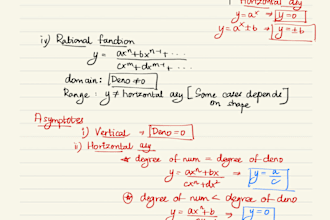 Horizontal asy
y = aˣ → y = 0
y = aˣ ± b → y = ± b
iv) Rational function
y = axⁿ + bxⁿ⁻¹ + . . .
cxᵐ + dxᵐ⁻¹ + . . .
domain: Deno ≠ 0
Range : y ≠ horizontal asy [Some cases depends
on shape
Asymptotes
i) Vertical → Deno = 0
ii) Horizontal asy
degree of num = degree of deno
y = axⁿ + bx → y = a/c
cxⁿ + dx²
degree of num < degree of deno
y = axⁿ + b → y = 0